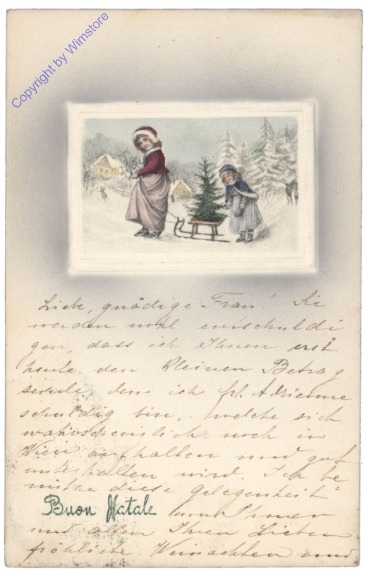 Copyright by Wimstore
Liebe, gnädige Frau! Sie
werden wol entschuldi
gen, dass ich Ihnen erst
heute den kleinen Betrag
sende, den ich frl. Adrienne
schuldig bin, welche sich
wahrscheinlich noch in
Wien aufhalten und gut
unterhalten wird. Ich be
nütze diese gelegenheit
Buon Natale
um Ihnen
und allen Ihren Lieben
fröhliche Weinachten und